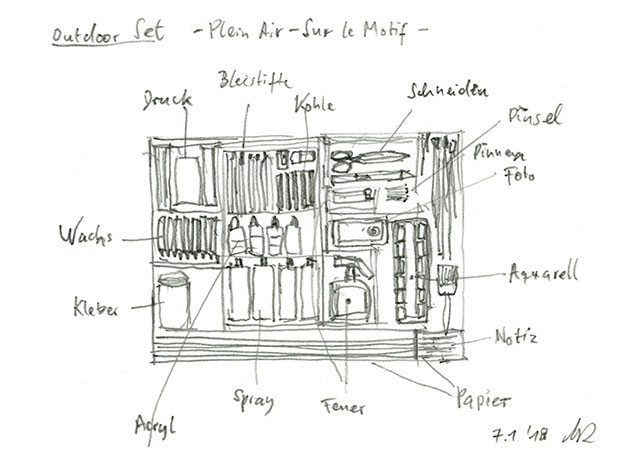 Outdoor Set - Plein Air - Sur le Motif -
Bleistifte
Druck
Kohle
Schneiden
Pinsel
Foto
Wachs
Aquarell
Kleber
Notiz
Spray
Feuer
Papier
Acryl
7.1.'18